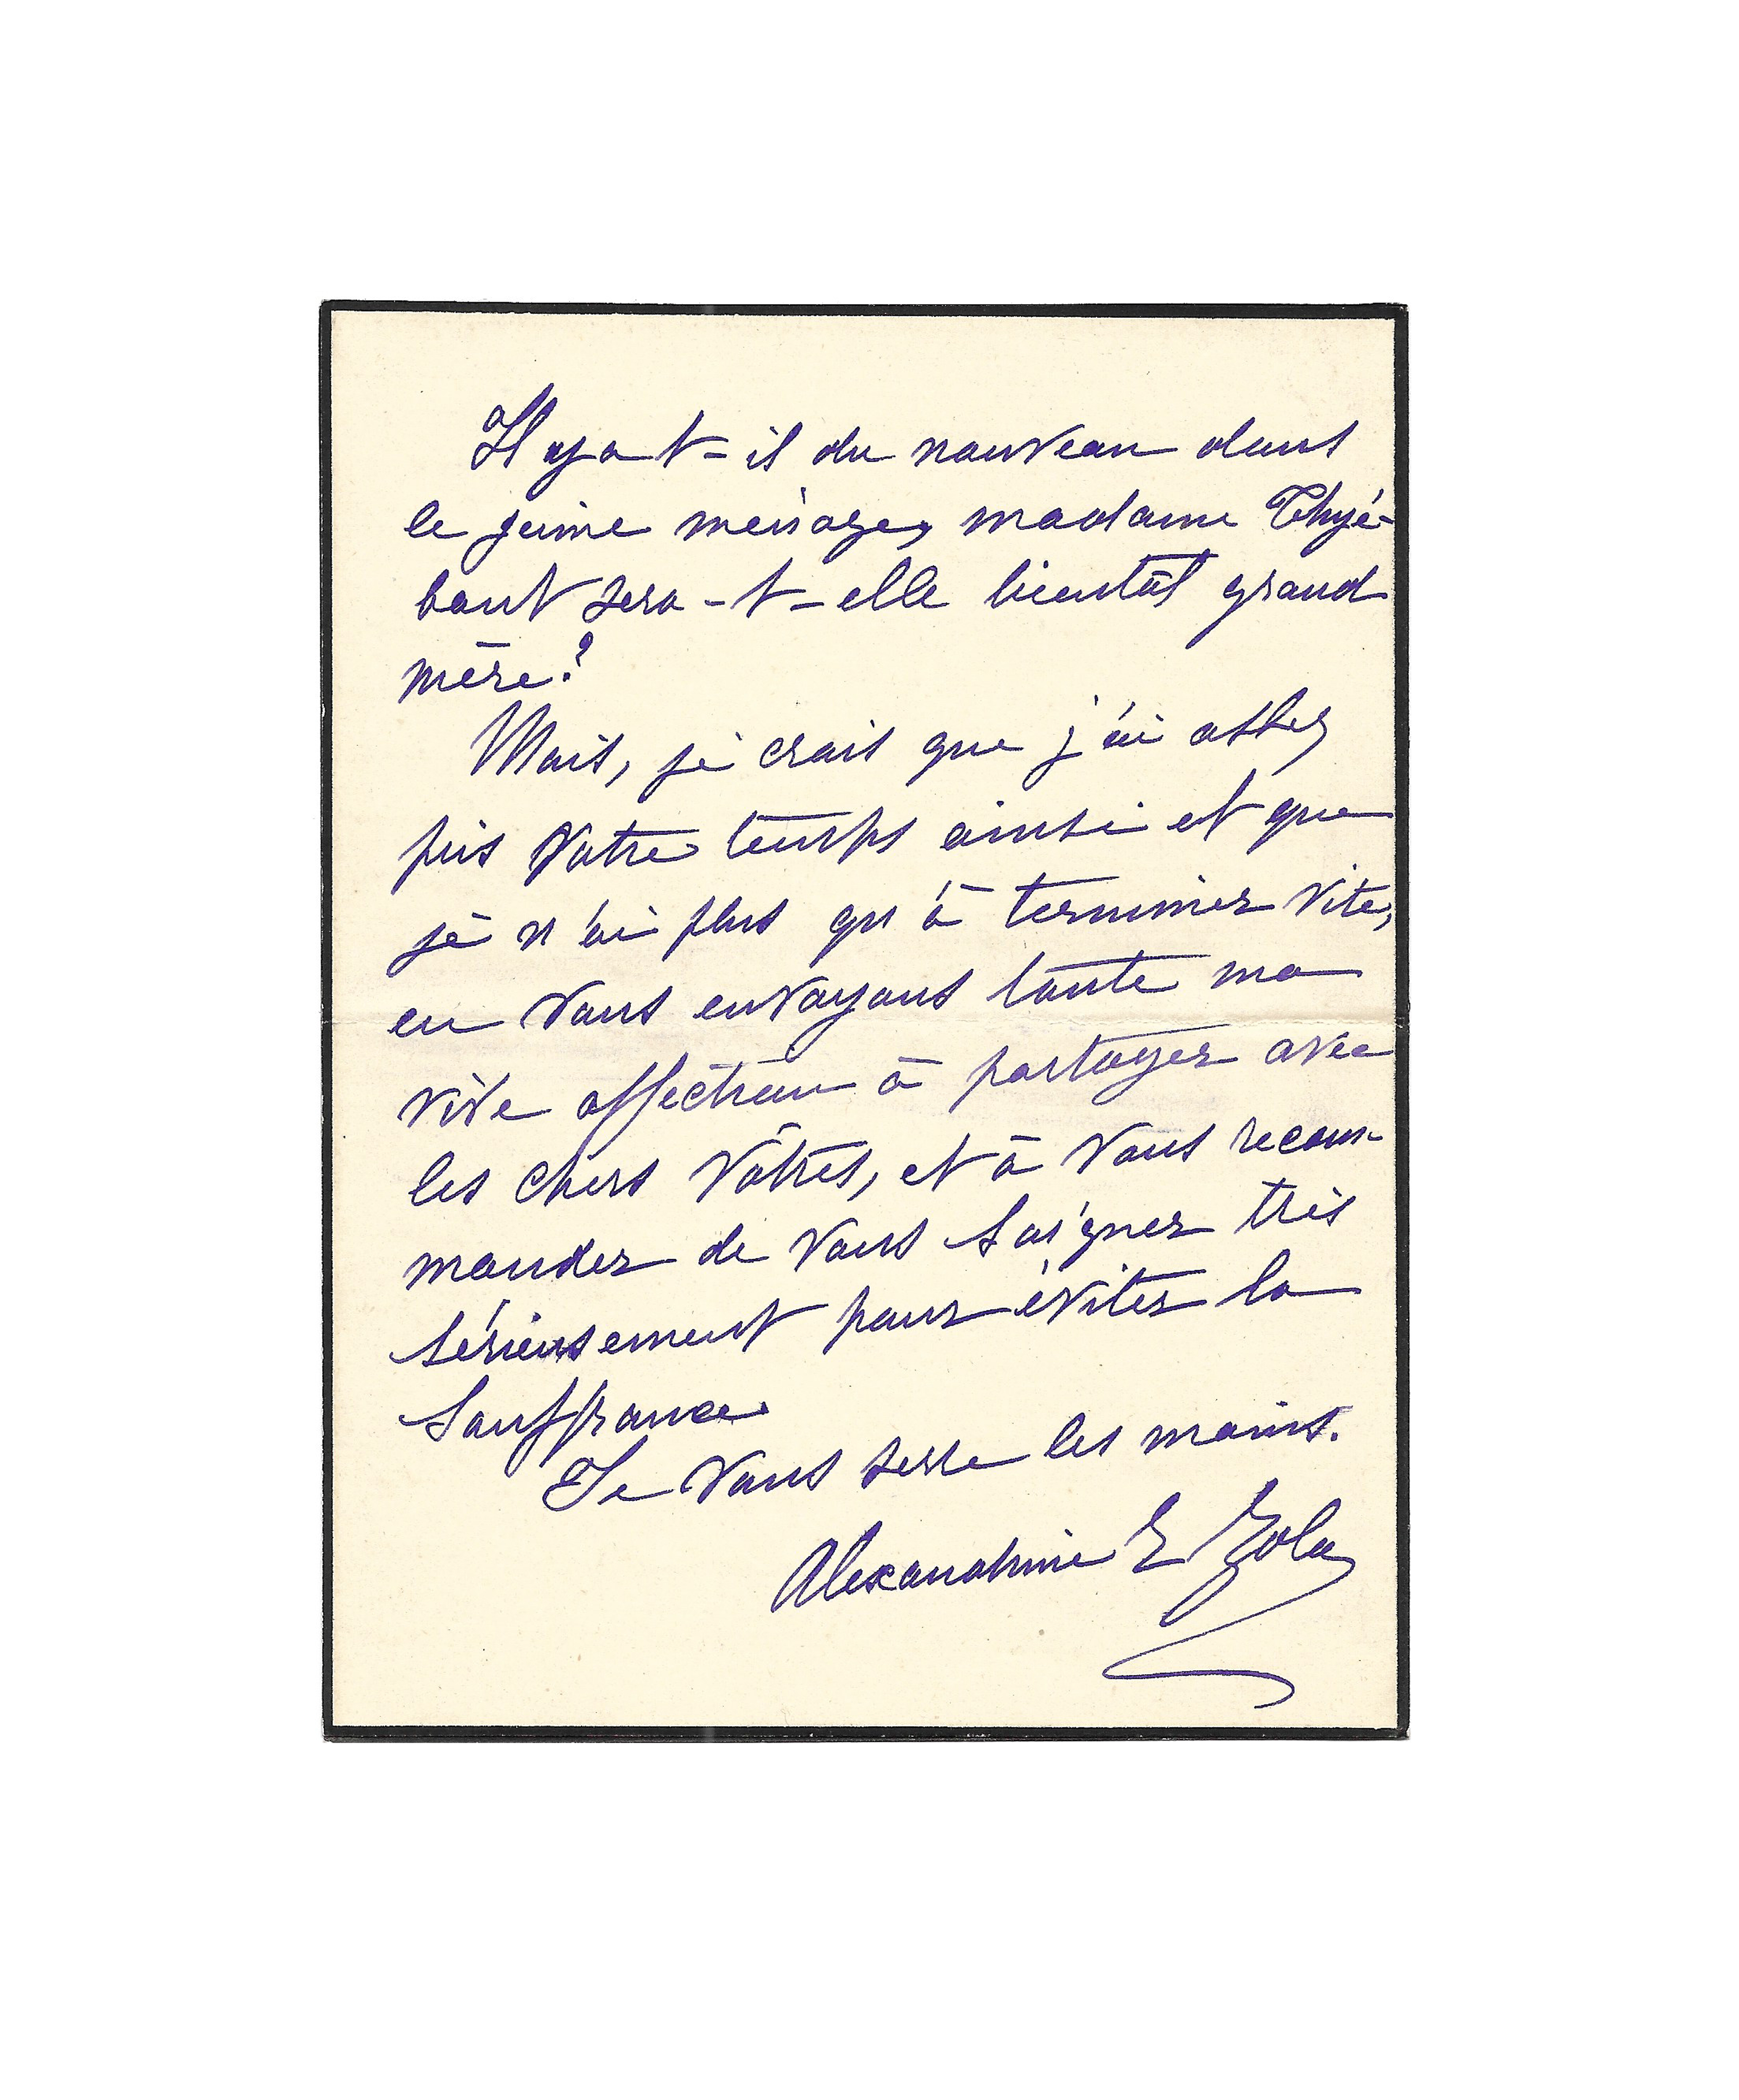 Il y a-t-il du nouveau dans
le jeune ménage, madame Thyé-
baut sera-t-elle bientôt grand
mère?
Mais, je crois que j'ai assez
pris votre temps ainsi et que
je n'ai plus qu'à terminer vite,
en vous envoyant toute ma
vive affection à partager avec
les chers vôtres, et à vous recom-
mander de vous soigner très
sérieusement pour éviter la
souffrance
Je vous serre les mains.
Alexandrine E Zola